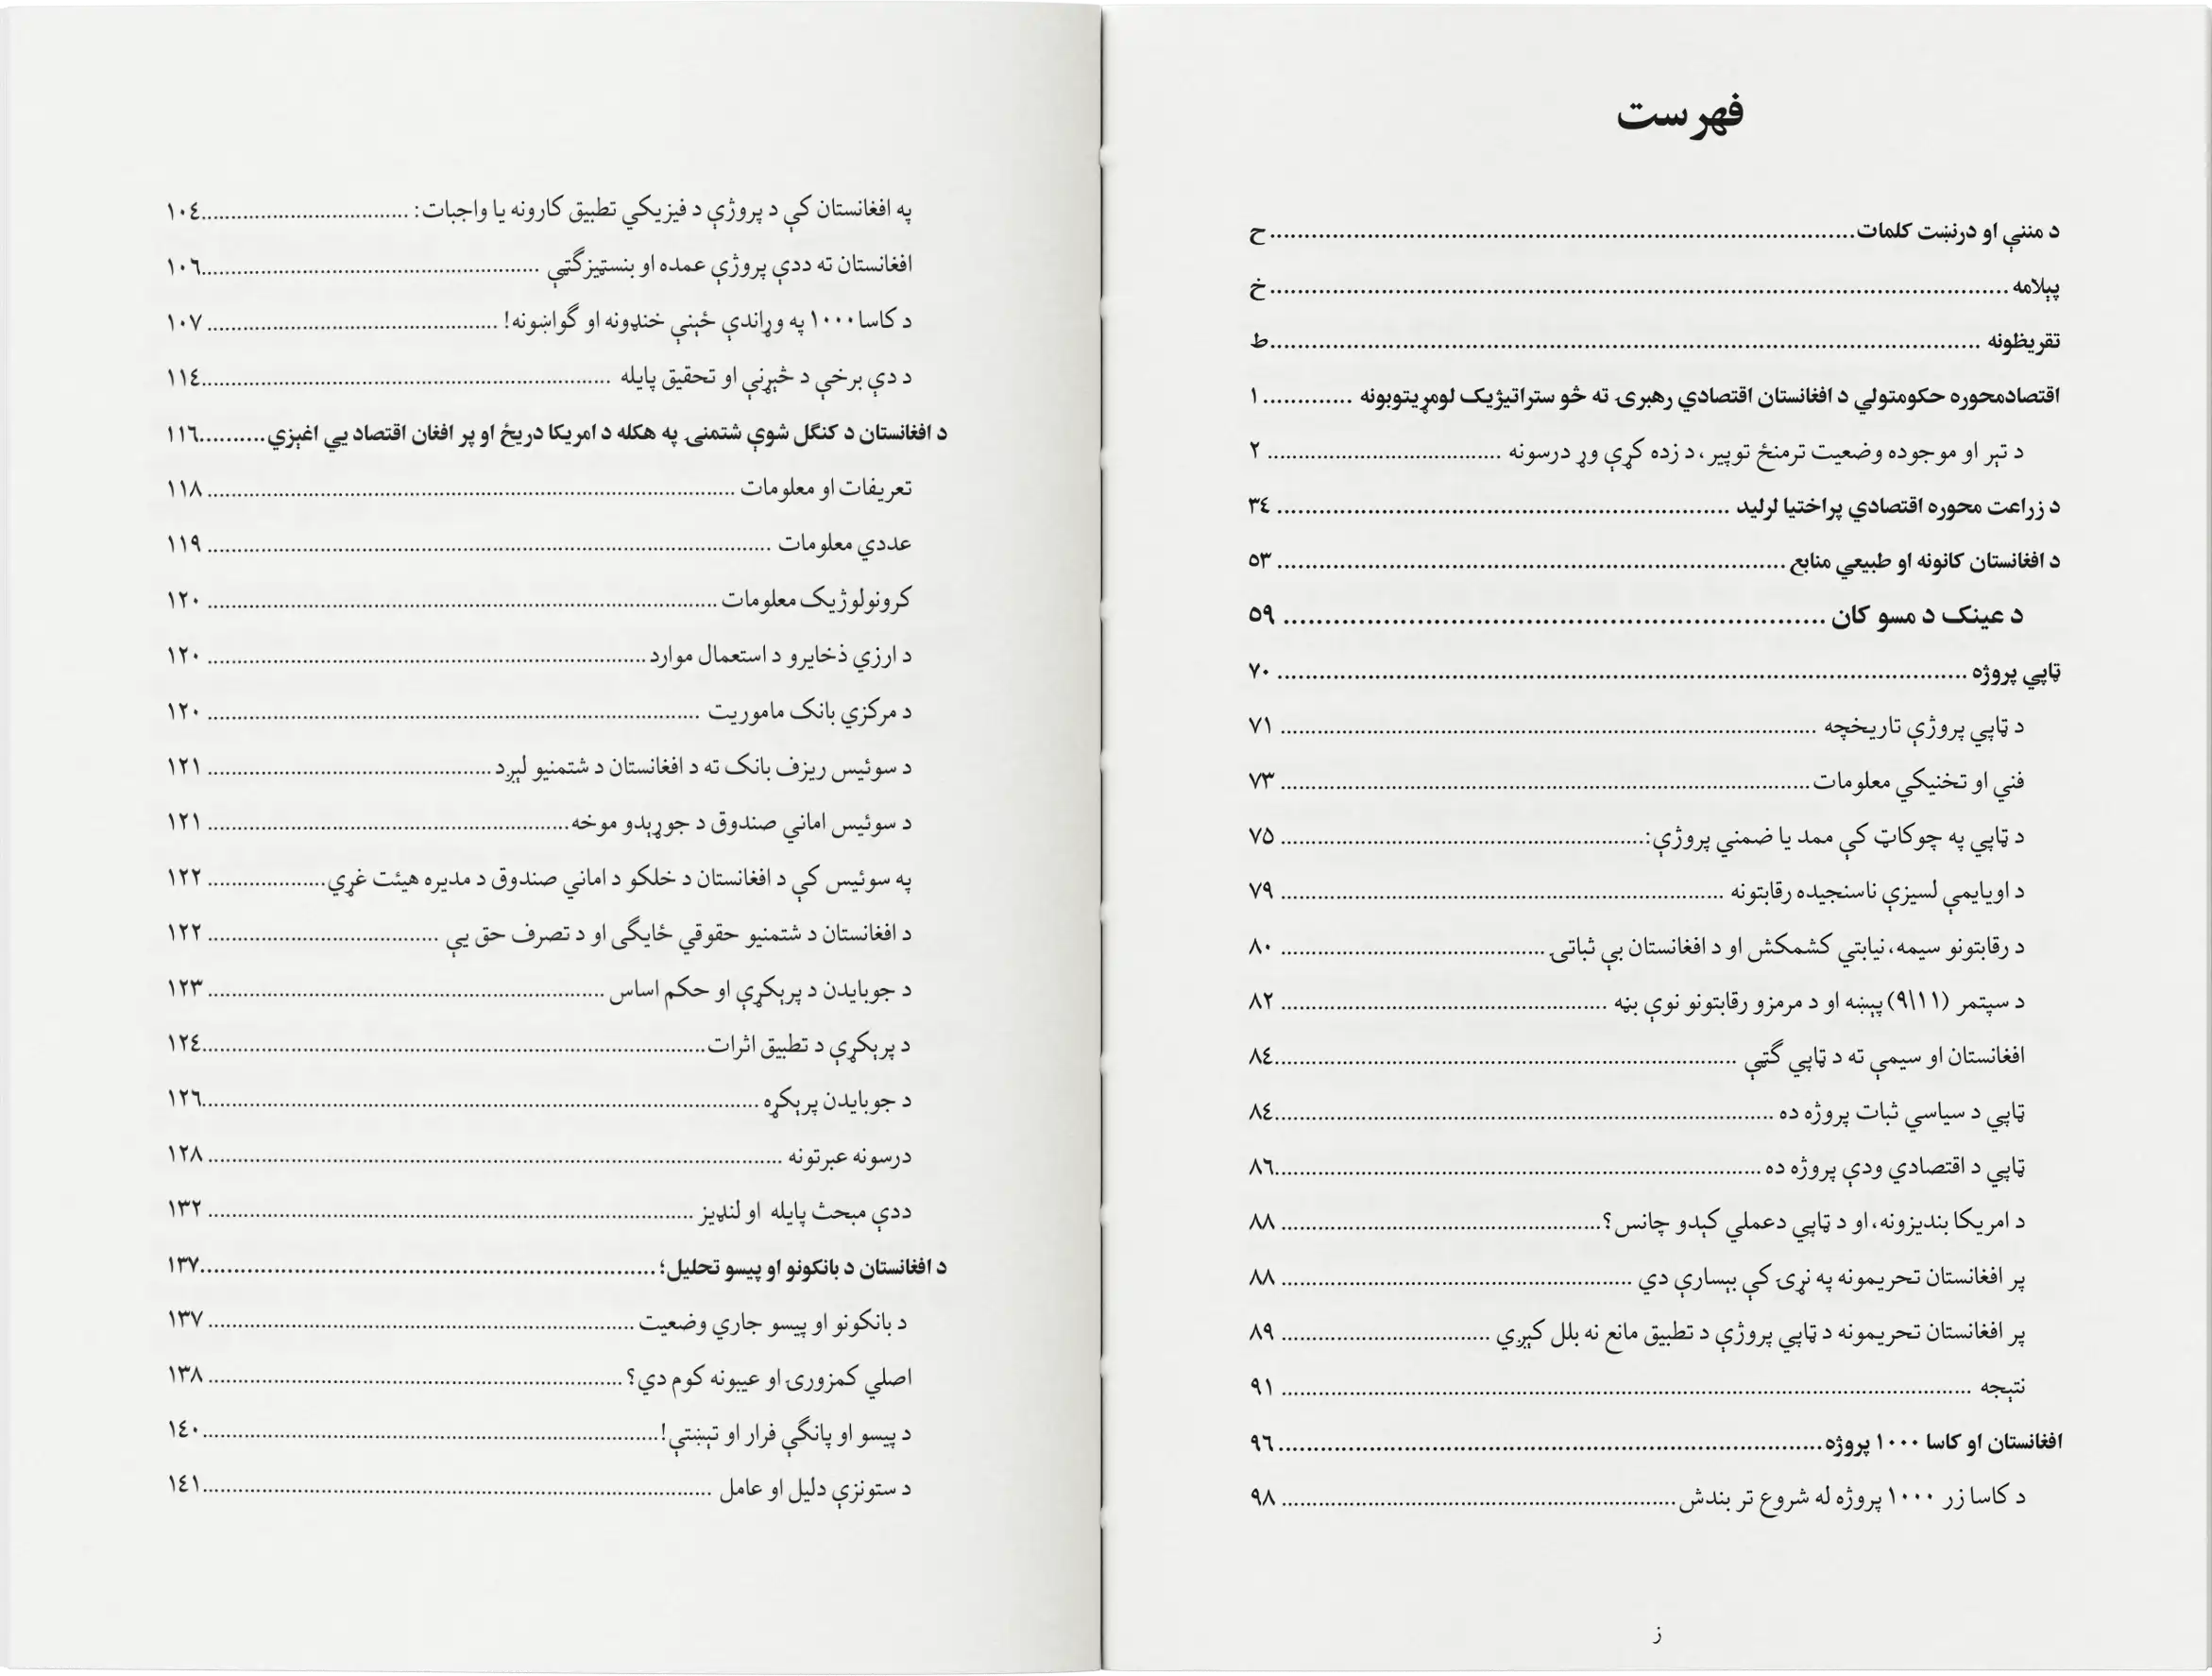 فهرست
د مننې او درنښت کلمات................................ح
پېلامه ................................خ
تقريظونه ................................ط
اقتصادمحوره حکومتولي د افغانستان اقتصادي رهبرۍ ته څو ستراتيژيک لومړيتوبونه ............. ١
د تېر او موجوده وضعيت ترمنځ توپير، د زده کړې وړ درسونه ................................ ٢
د زراعت محوره اقتصادي پراختيا لرليد ................................ ٣٤
د افغانستان کانونه او طبيعي منابع ................................ ٥٣
د عينک د مسو کان ................................ ٥٩
ټاپي پروژه ................................ ٧٠
د ټاپي پروژې تاريخچه ................................ ٧١
فني او تخنيکي معلومات................................ ٧٣
د ټاپي په چوکاټ کې ممد يا ضمني پروژې:................................ ٧٥
د اويايمې لسيزې ناسنجيده رقابتونه ................................ ٧٩
د رقابتونو سيمه، نيابتي کشمکش او د افغانستان بې ثباتۍ ................................ ٨٠
د سپتمر (٩\١١) پېښه او د مرمزو رقابتونو نوې بڼه ................................ ٨٢
افغانستان او سيمې ته د ټاپي ګټې ................................٨٤
ټاپي د سياسي ثبات پروژه ده ................................٨٤
ټاپي د اقتصادي ودې پروژه ده ................................٨٦
د امريکا بنديزونه، او د ټاپي دعملي کېدو چانس؟................................ ٨٨
پر افغانستان تحريمونه په نړۍ کې بېسارې دي ................................ ٨٨
پر افغانستان تحريمونه د ټاپي پروژې د تطبيق مانع نه بلل کېږي ................................ ٨٩
نتېجه ................................ ٩١
افغانستان او کاسا ١٠٠٠ پروژه................................ ٩٦
د کاسا زر ١٠٠٠ پروژه له شروع تر بندش................................ ٩٨
ز
په افغانستان کې د پروژې د فيزيکي تطبيق کارونه يا واجبات: ................................١٠٤
افغانستان ته ددې پروژې عمده او بنسټيزګټې ................................١٠٦
د کاسا١٠٠٠ په وړاندې ځېنې خنډونه او ګواښونه! ................................ ١٠٧
د دې برخې د څېړنې او تحقيق پايله ................................١١٤
د افغانستان د کنګل شوې شتمنۍ په هکله د امريکا دريځ او پر افغان اقتصاد يې اغېزې..........١١٦
تعريفات او معلومات ................................ ١١٨
عددي معلومات ................................ ١١٩
کرونولوژيک معلومات ................................ ١٢٠
د ارزي ذخايرو د استعمال موارد................................ ١٢٠
د مرکزي بانک ماموريت ................................ ١٢٠
د سوئيس ريزف بانک ته د افغانستان د شتمنيو لېږد................................ ١٢١
د سوئيس اماني صندوق د جوړېدو موخه................................ ١٢١
په سوئيس کې د افغانستان د خلکو د اماني صندوق د مديره هيئت غړي.................... ١٢٢
د افغانستان د شتمنيو حقوقي ځايګی او د تصرف حق يې ................................ ١٢٢
د جوبايدن د پرېکړې او حکم اساس ................................ ١٢٣
د پرېکړې د تطبيق اثرات................................١٢٤
د جوبايدن پرېکړه ................................١٢٦
درسونه عبرتونه ................................ ١٢٨
ددې مبحث پايله او لنډيز ................................ ١٣٢
د افغانستان د بانکونو او پيسو تحليل؛ ................................١٣٧
د بانکونو او پيسو جاري وضعيت ................................ ١٣٧
اصلي کمزورۍ او عيبونه کوم دي؟ ................................ ١٣٨
د پيسو او پانګې فرار او تېښتې!................................١٤٠
د ستونزې دليل او عامل ................................١٤١